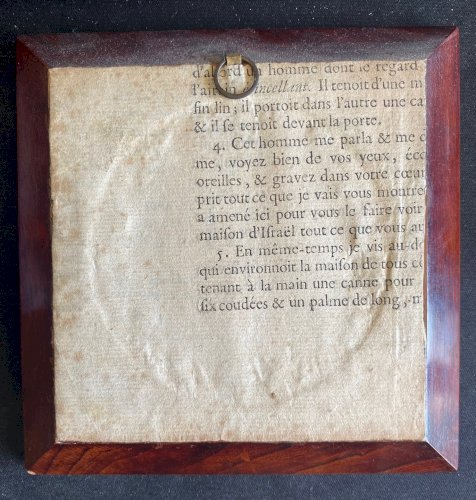 d'abord un homme dont le regard
l'airain étincellant. Il tenoit d'une m
fin lin; il portoit dans l'autre une ca
& il se tenoit devant la porte.
4. Cet homme me parla & me d
me, voyez bien de vos yeux, éco
oreilles, & gravez dans votre cœur
prit tout ce que je vais vous montre
a amené ici pour vous le faire voir
maison d'Israël tout ce que vous au
5. En même-temps je vis au-de
qui environnoit la maison de tous cô
tenant à la main une canne pour
six coudées & un palme de long,